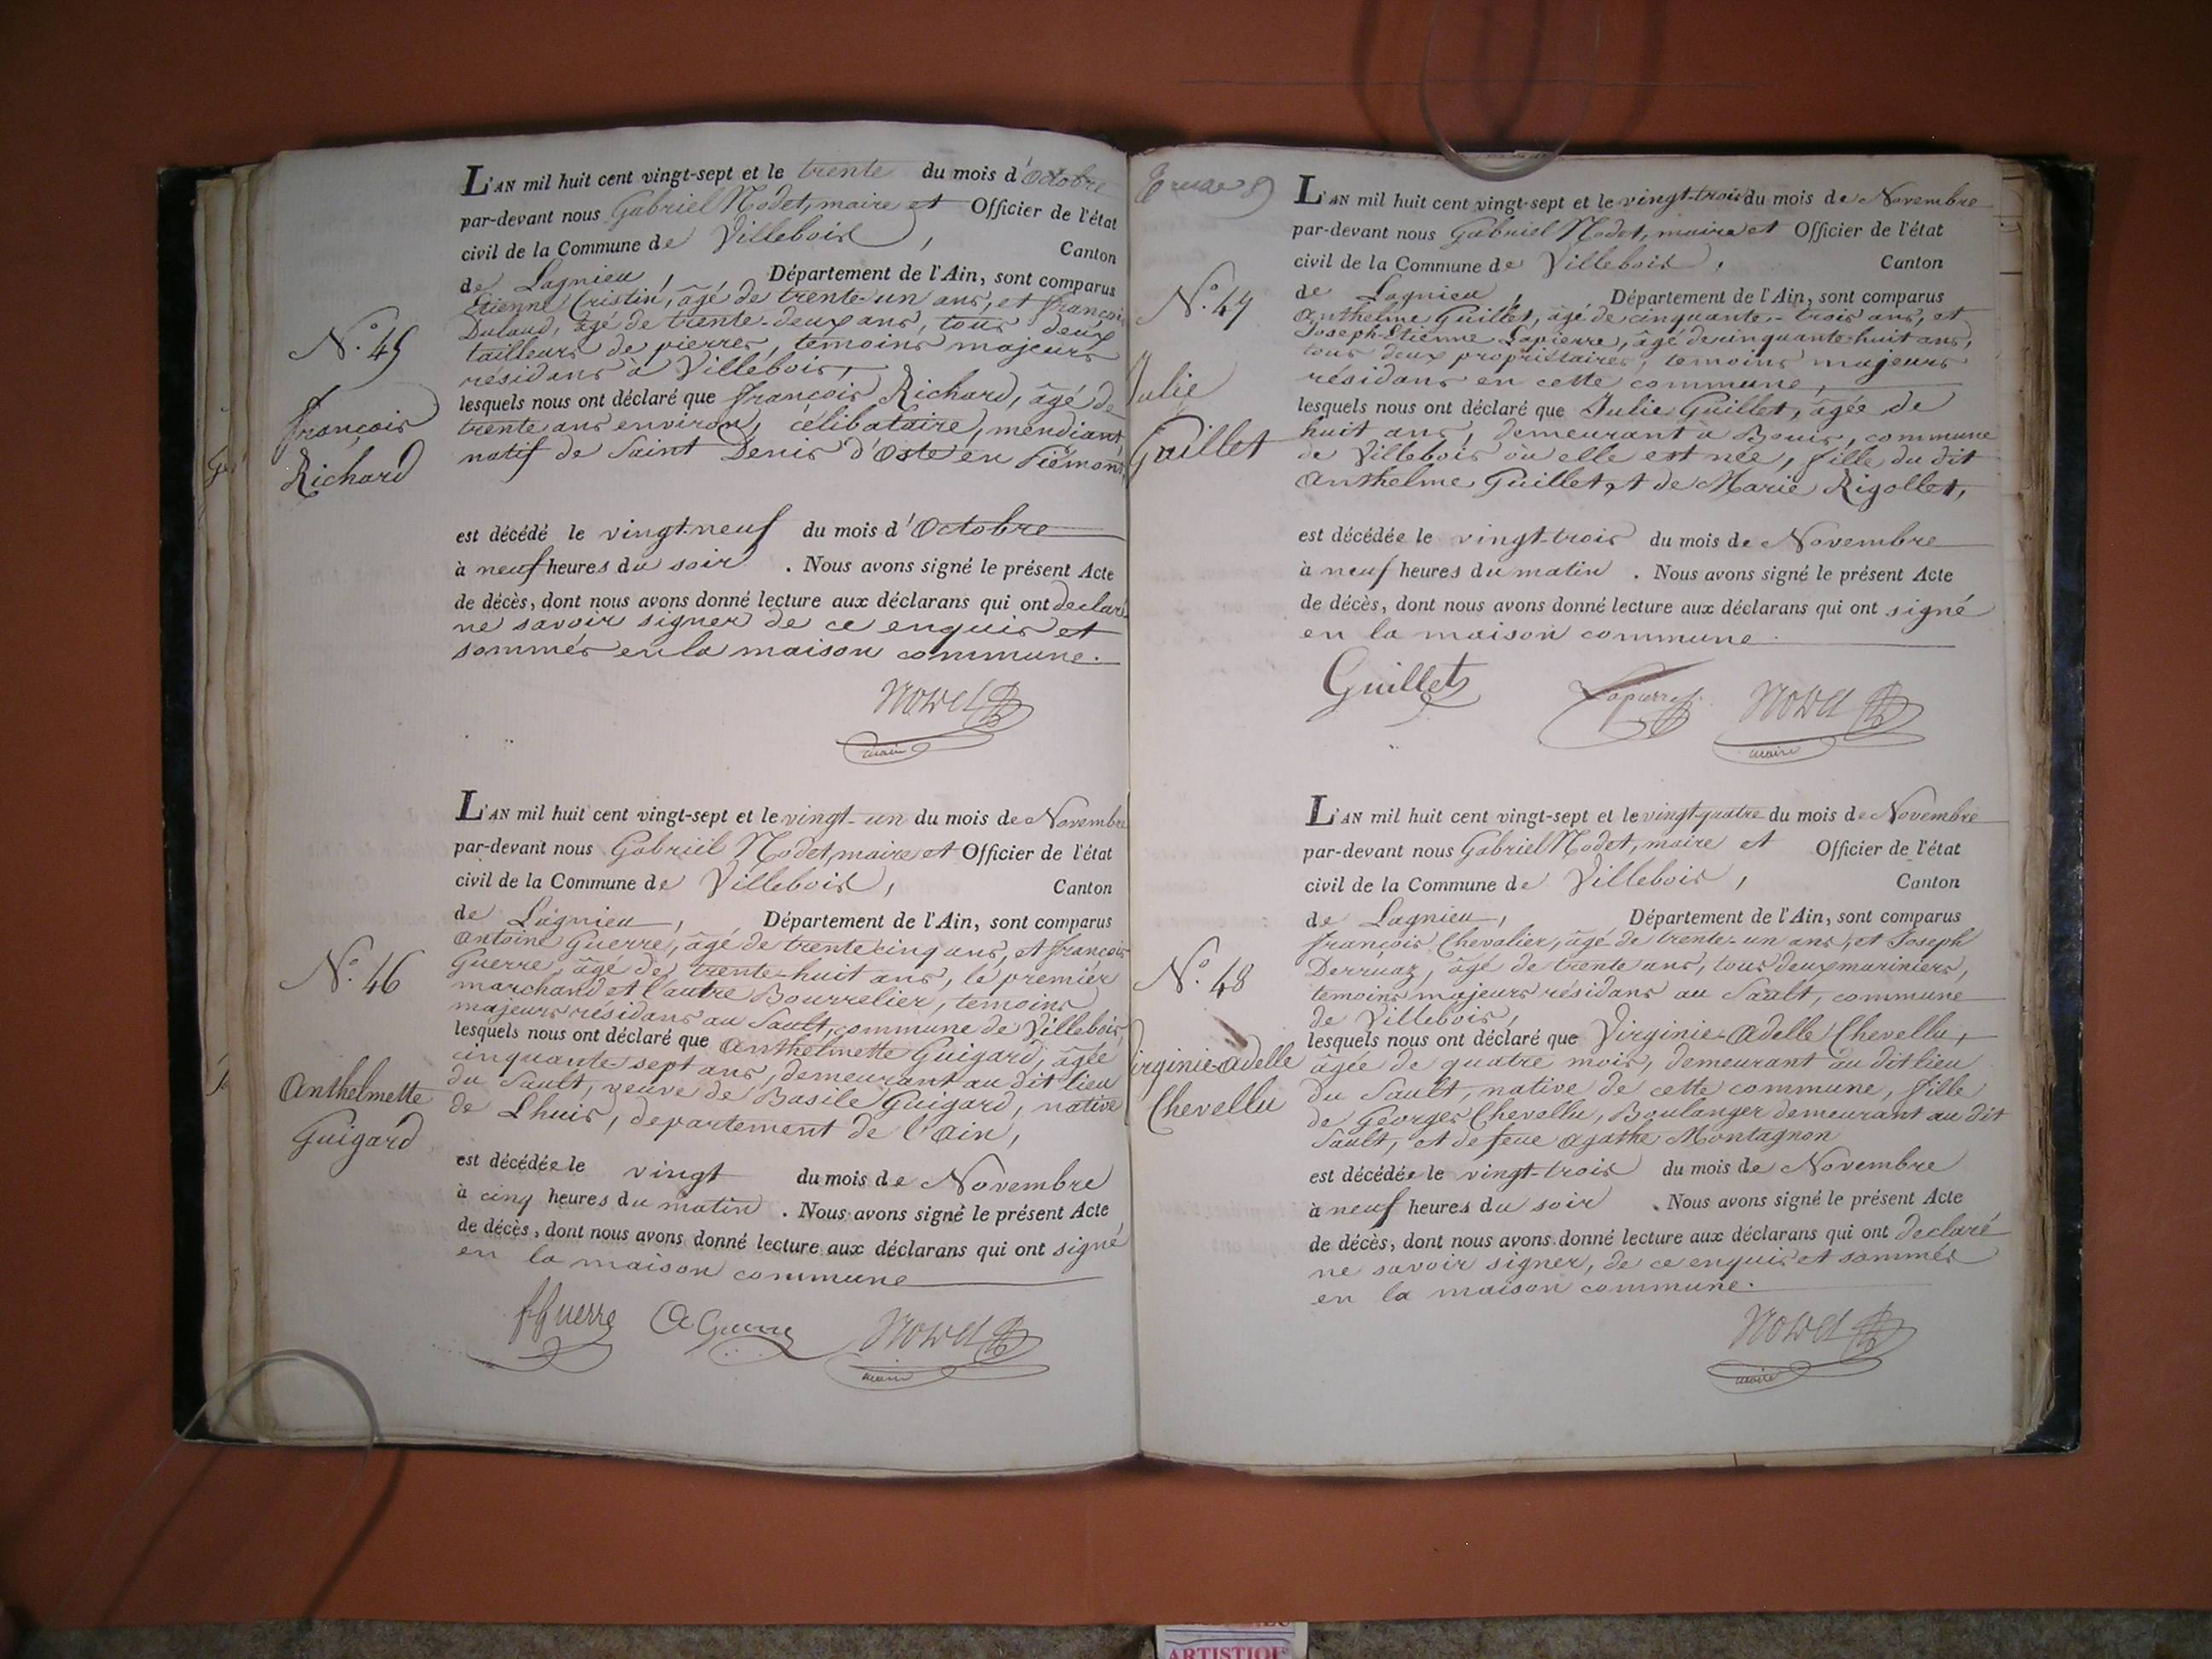 L'AN mil huit cent vingt-sept et le trente du mois d'Octobre
par-devant nous Gabriel Nodet, maire et Officier de l'état
civil de la Commune de Villebois, Canton
de Lagnieu, Département de l'Ain, sont comparus
Etienne Cristin, âgé de trente-un ans, et françois
Dulaud, âgé de trente-deux ans, tous deux
tailleurs de pierres, témoins majeurs
résidans à Villebois,
lesquels nous ont déclaré que françois Richard, âgé de
trente ans environ, célibataire, mendiant
natif de Saint Denis d'Oste en Piémont,
est décédé le vingt-neuf du mois d'Octobre
à neuf heures du soir. Nous avons signé le présent Acte
de décès, dont nous avons donné lecture aux déclarans qui ont declaré
ne savoir signer de ce enquis et
sommés en la maison commune.
Nodet
maire
N.° 45
françois
Richard
L'AN mil huit cent vingt-sept et le vingt-un du mois de Novembre
par-devant nous Gabriel Nodet, maire et Officier de l'état
civil de la Commune de Villebois, Canton
de Lagnieu, Département de l'Ain, sont comparus
Antoine Guerre, âgé de trente cinq ans, et françois
Guerre, âgé de trente-huit ans, le premier
marchand et l'autre Bourrelier, témoins
majeurs résidans au Sault, commune de Villebois,
lesquels nous ont déclaré que Anthelmette Guigard, âgée
cinquante-sept ans, demeurant au dit lieu
du Sault, veuve de Basile Guigard, native
de Lhuis, département de l'Ain,
est décédée le vingt du mois de Novembre
à cinq heures du matin. Nous avons signé le présent Acte
de décès, dont nous avons donné lecture aux déclarans qui ont signé
en la maison commune
f Guerre A Guerre Nodet
maire
N.° 46
Anthelmette
Guigard
L'AN mil huit cent vingt-sept et le vingt-trois du mois de Novembre
par-devant nous Gabriel Nodet, maire et Officier de l'état
civil de la Commune de Villebois, Canton
de Lagnieu, Département de l'Ain, sont comparus
Anthelme Guillet, âgé de cinquante-trois ans, et
Joseph-Etienne Lapierre, âgé de cinquante-huit ans,
tous deux propriétaires, témoins majeurs
résidans en cette commune,
lesquels nous ont déclaré que Julie Guillet, âgée de
huit ans, demeurant à Bouis, commune
de Villebois où elle est née, fille du dit
Anthelme Guillet, et de Marie Rigollet,
est décédée le vingt-trois du mois de Novembre
à neuf heures du matin. Nous avons signé le présent Acte
de décès, dont nous avons donné lecture aux déclarans qui ont signé
en la maison commune.
Guillet Lapierre Nodet
maire
N.° 47
Julie
Guillet
L'AN mil huit cent vingt-sept et le vingt-quatre du mois de Novembre
par-devant nous Gabriel Nodet, maire et Officier de l'état
civil de la Commune de Villebois, Canton
de Lagnieu, Département de l'Ain, sont comparus
françois Chevalier, âgé de trente-un ans, et Joseph
Derruaz, âgé de trente ans, tous deux mariniers,
témoins majeurs résidans au Sault, commune
de Villebois,
lesquels nous ont déclaré que Virginie-Adelle Chevellu,
âgée de quatre mois, demeurant au dit lieu
du Sault, native de cette commune, fille
de Georges Chevellu, Boulanger demeurant au dit
Sault, et de feue Agathe Montagnon
est décédée le vingt-trois du mois de Novembre
à neuf heures du soir. Nous avons signé le présent Acte
de décès, dont nous avons donné lecture aux déclarans qui ont declaré
ne savoir signer, de ce enquis et sommés
en la maison commune.
Nodet
maire
N.° 48
Virginie-Adelle
Chevellu
ARTISTIQ